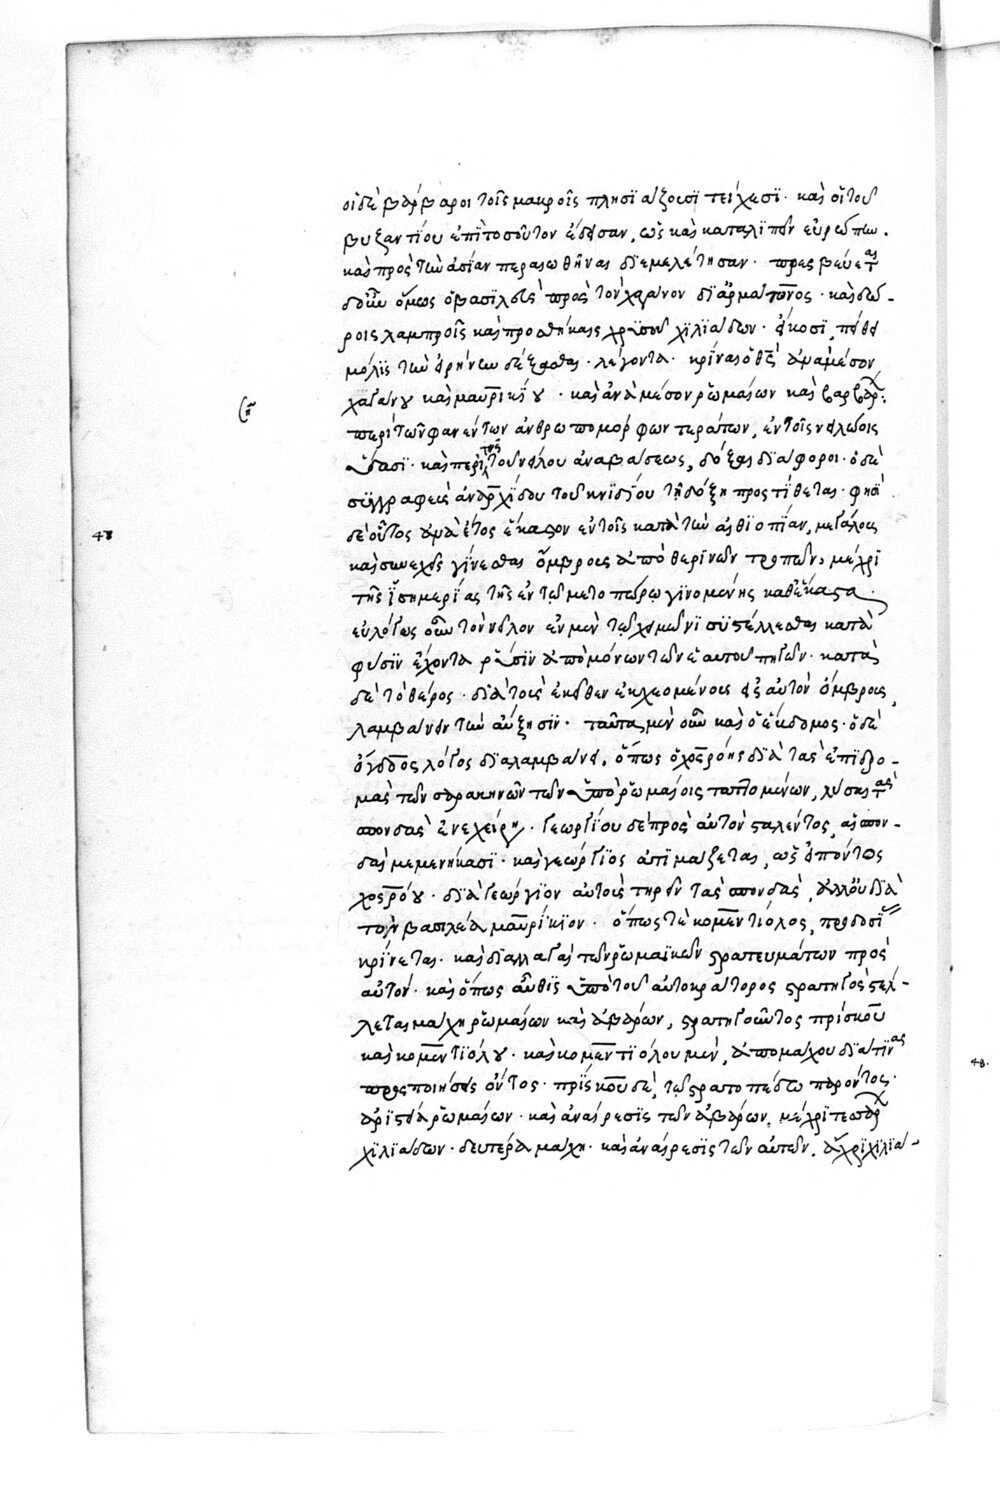 οἱ δὲ βάρβαροι τοῖς μακροῖς πλησιάζουσι τείχεσι· καὶ οἱ τοῦ
βυζαντίου ἐπὶ τοσοῦτον ἔδεισαν, ὡς καὶ καταλιπεῖν εὐρώπην.
καὶ πρὸς τὴν ἀσίαν περαιωθῆναι διεμελέτησαν· πρεσβεύεται
δ' οὖν ὅμως ὁ βασιλεὺς πρὸς τὸν χαγάνον δι' ἁρμάτονος· καὶ δώ-
ροις λαμπροῖς καὶ προσθήκαις χρυσοῦ χιλιάδων· εἴκοσι, πείθει
μόλις τὴν εἰρήνην δέξασθαι· λέγοντα· κρίναι ὁ θεὸς ἀναμέσον
χαγάνου καὶ μαυρικίου· καὶ ἀνὰ μέσον ῥωμαίων καὶ βαρβάρων·
περὶ τῶν φανέντων ἀνθρωπομόρφων τεράτων, ἐν τοῖς νείλώοις
ὕδασι· καὶ περὶ τῆς τοῦ νείλου ἀναβάσεως, δόξαι διάφοροι· ὁ δὲ
συγγραφεὺς ἀνδρχίδου τοῦ κνιδίου τῇ δόξῃ προστίθεται· φησὶ
δὲ οὗτος ἀνὰ ἔτος ἕκαστον ἐν τοῖς κατὰ τὴν αἰθιοπίαν, μεγάλους
καὶ συνεχεῖς γίνεσθαι ὄμβρους ἀπὸ θερινῶν τροπῶν, μέχρι
τῆς ἰσημερίας τῆς ἐν τῷ μετοπώρῳ γινομένης καθ' ἕκαστα·
εὐλόγως οὖν τὸν νεῖλον ἐν μὲν τῷ χειμῶνι συστέλλεσθαι κατὰ
φύσιν ἔχοντα ῥύσιν ἀπὸ μόνων τῶν ἑαυτοῦ πηγῶν· κατὰ
δὲ τὸ θέρος· διὰ τοὺς ἐκεῖθεν ἐκχεομένους εἰς αὐτὸν ὄμβρους,
λαμβάνειν τὴν αὔξησιν· ταῦτα μὲν οὖν καὶ ὁ ἕβδομος· ὁ δὲ
ὄγδοος λόγος διαλαμβάνει. ὅπως ὁ χοσρόης διὰ τὰς ἐπιδρο-
μὰς τῶν σαρακηνῶν τῶν ὑπὸ ῥωμαίοις ταττομένων, λύσαι τὰς
σπονδὰς ἐνεχείρει· γεωργίου δὲ πρὸς αὐτὸν σταλέντος, αἱ σπον-
δαὶ μεμενήκασι· καὶ γεώργιος ἀτιμάζεται, ὡς εἰπόντος
χοσρόου· διὰ γεώργιον αὐτοὺς τηρεῖν τὰς σπονδὰς, ἀλλ' οὐ διὰ
τὸν βασιλέα μαυρίκιον· ὅπως τε κομεντίολος, προδοσίας
κρίνεται· καὶ διαλλαγαὶ τῶν ῥωμαϊκῶν στρατευμάτων πρὸς
αὐτόν· καὶ ὅπως αὖθις ὑπὸ τοῦ αὐτοκράτορος στρατηγὸς στέλ-
λεται μάχη ῥωμαίων καὶ ἀβάρων, στρατηγοῦντος πρίσκου
καὶ κομεντιόλου· καὶ κομεντιόλου μὲν, ἀπομάχου διά τινας
προσποιήσεις ὄντος· πρίσκου δὲ, τῷ στρατοπέδῳ παρόντος·
ἀριστεῖα ῥωμαίων· καὶ ἀναίρεσις τῶν ἀβάρων, μέχρι τεσσάρων
χιλιάδων· δευτέρα μάχη· καὶ ἀναίρεσις τῶν αὐτῶν, ἄχρι χιλιά-
48
48.